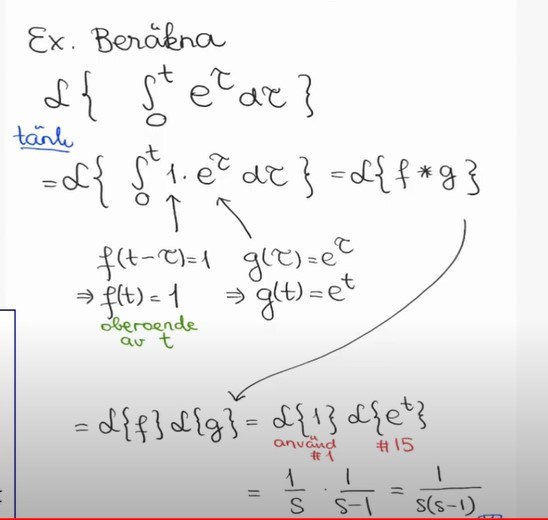 Ex. Beräkna
ℒ{ ∫₀ᵗ e^τ dτ }
tänk
= ℒ{ ∫₀ᵗ 1 · e^τ dτ } = ℒ{f * g}
f(t-τ)=1 g(τ)=e^τ
⇒ f(t)=1 ⇒ g(t)=e^t
oberoende
av t
= ℒ{f} ℒ{g} = ℒ{1} ℒ{e^t}
använd #1 #15
= 1/s · 1/(s-1) = 1/(s(s-1))